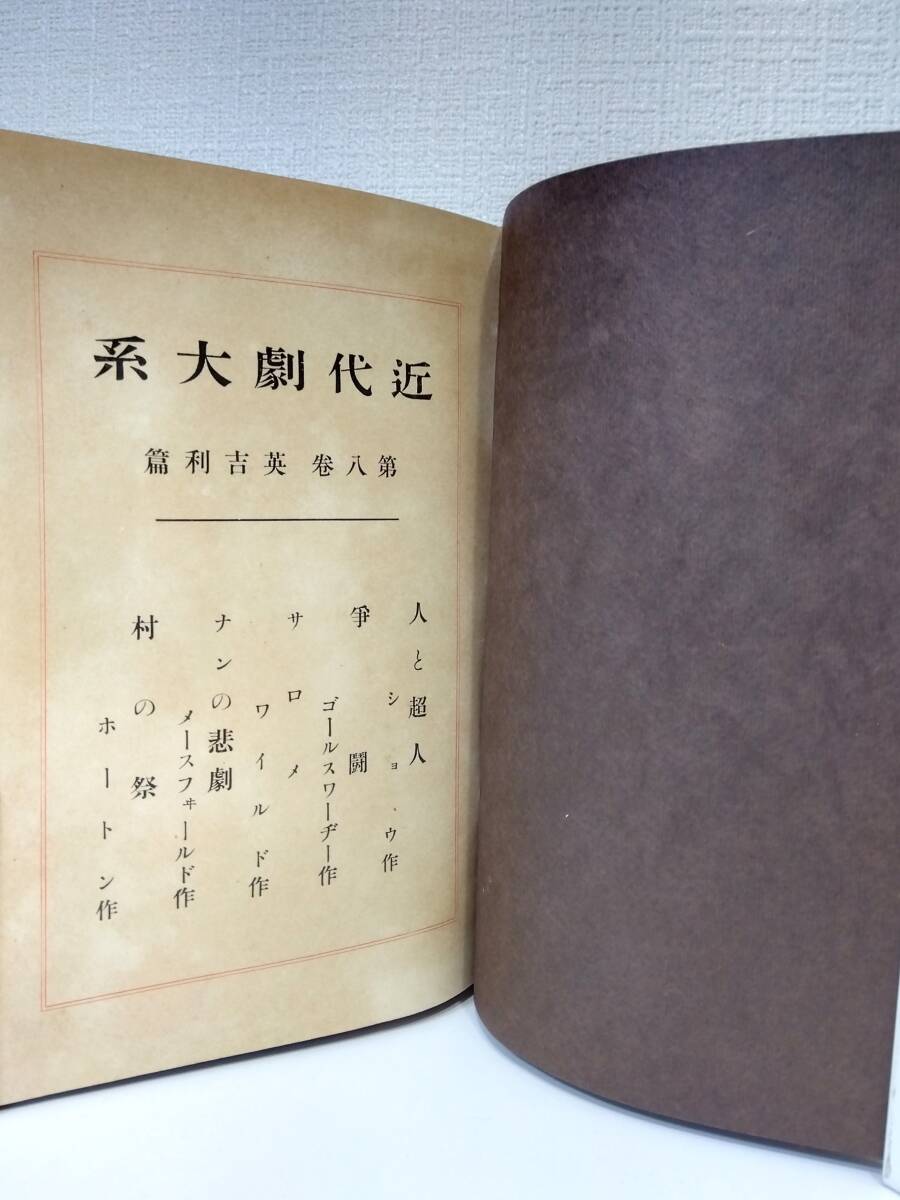 近代劇大系
第八卷 英吉利篇
人と超人
ショウ作
爭鬪
ゴールスワーヂー作
サロメ
ワイルド作
ナンの悲劇
メースフヰールド作
村の祭
ホートン作